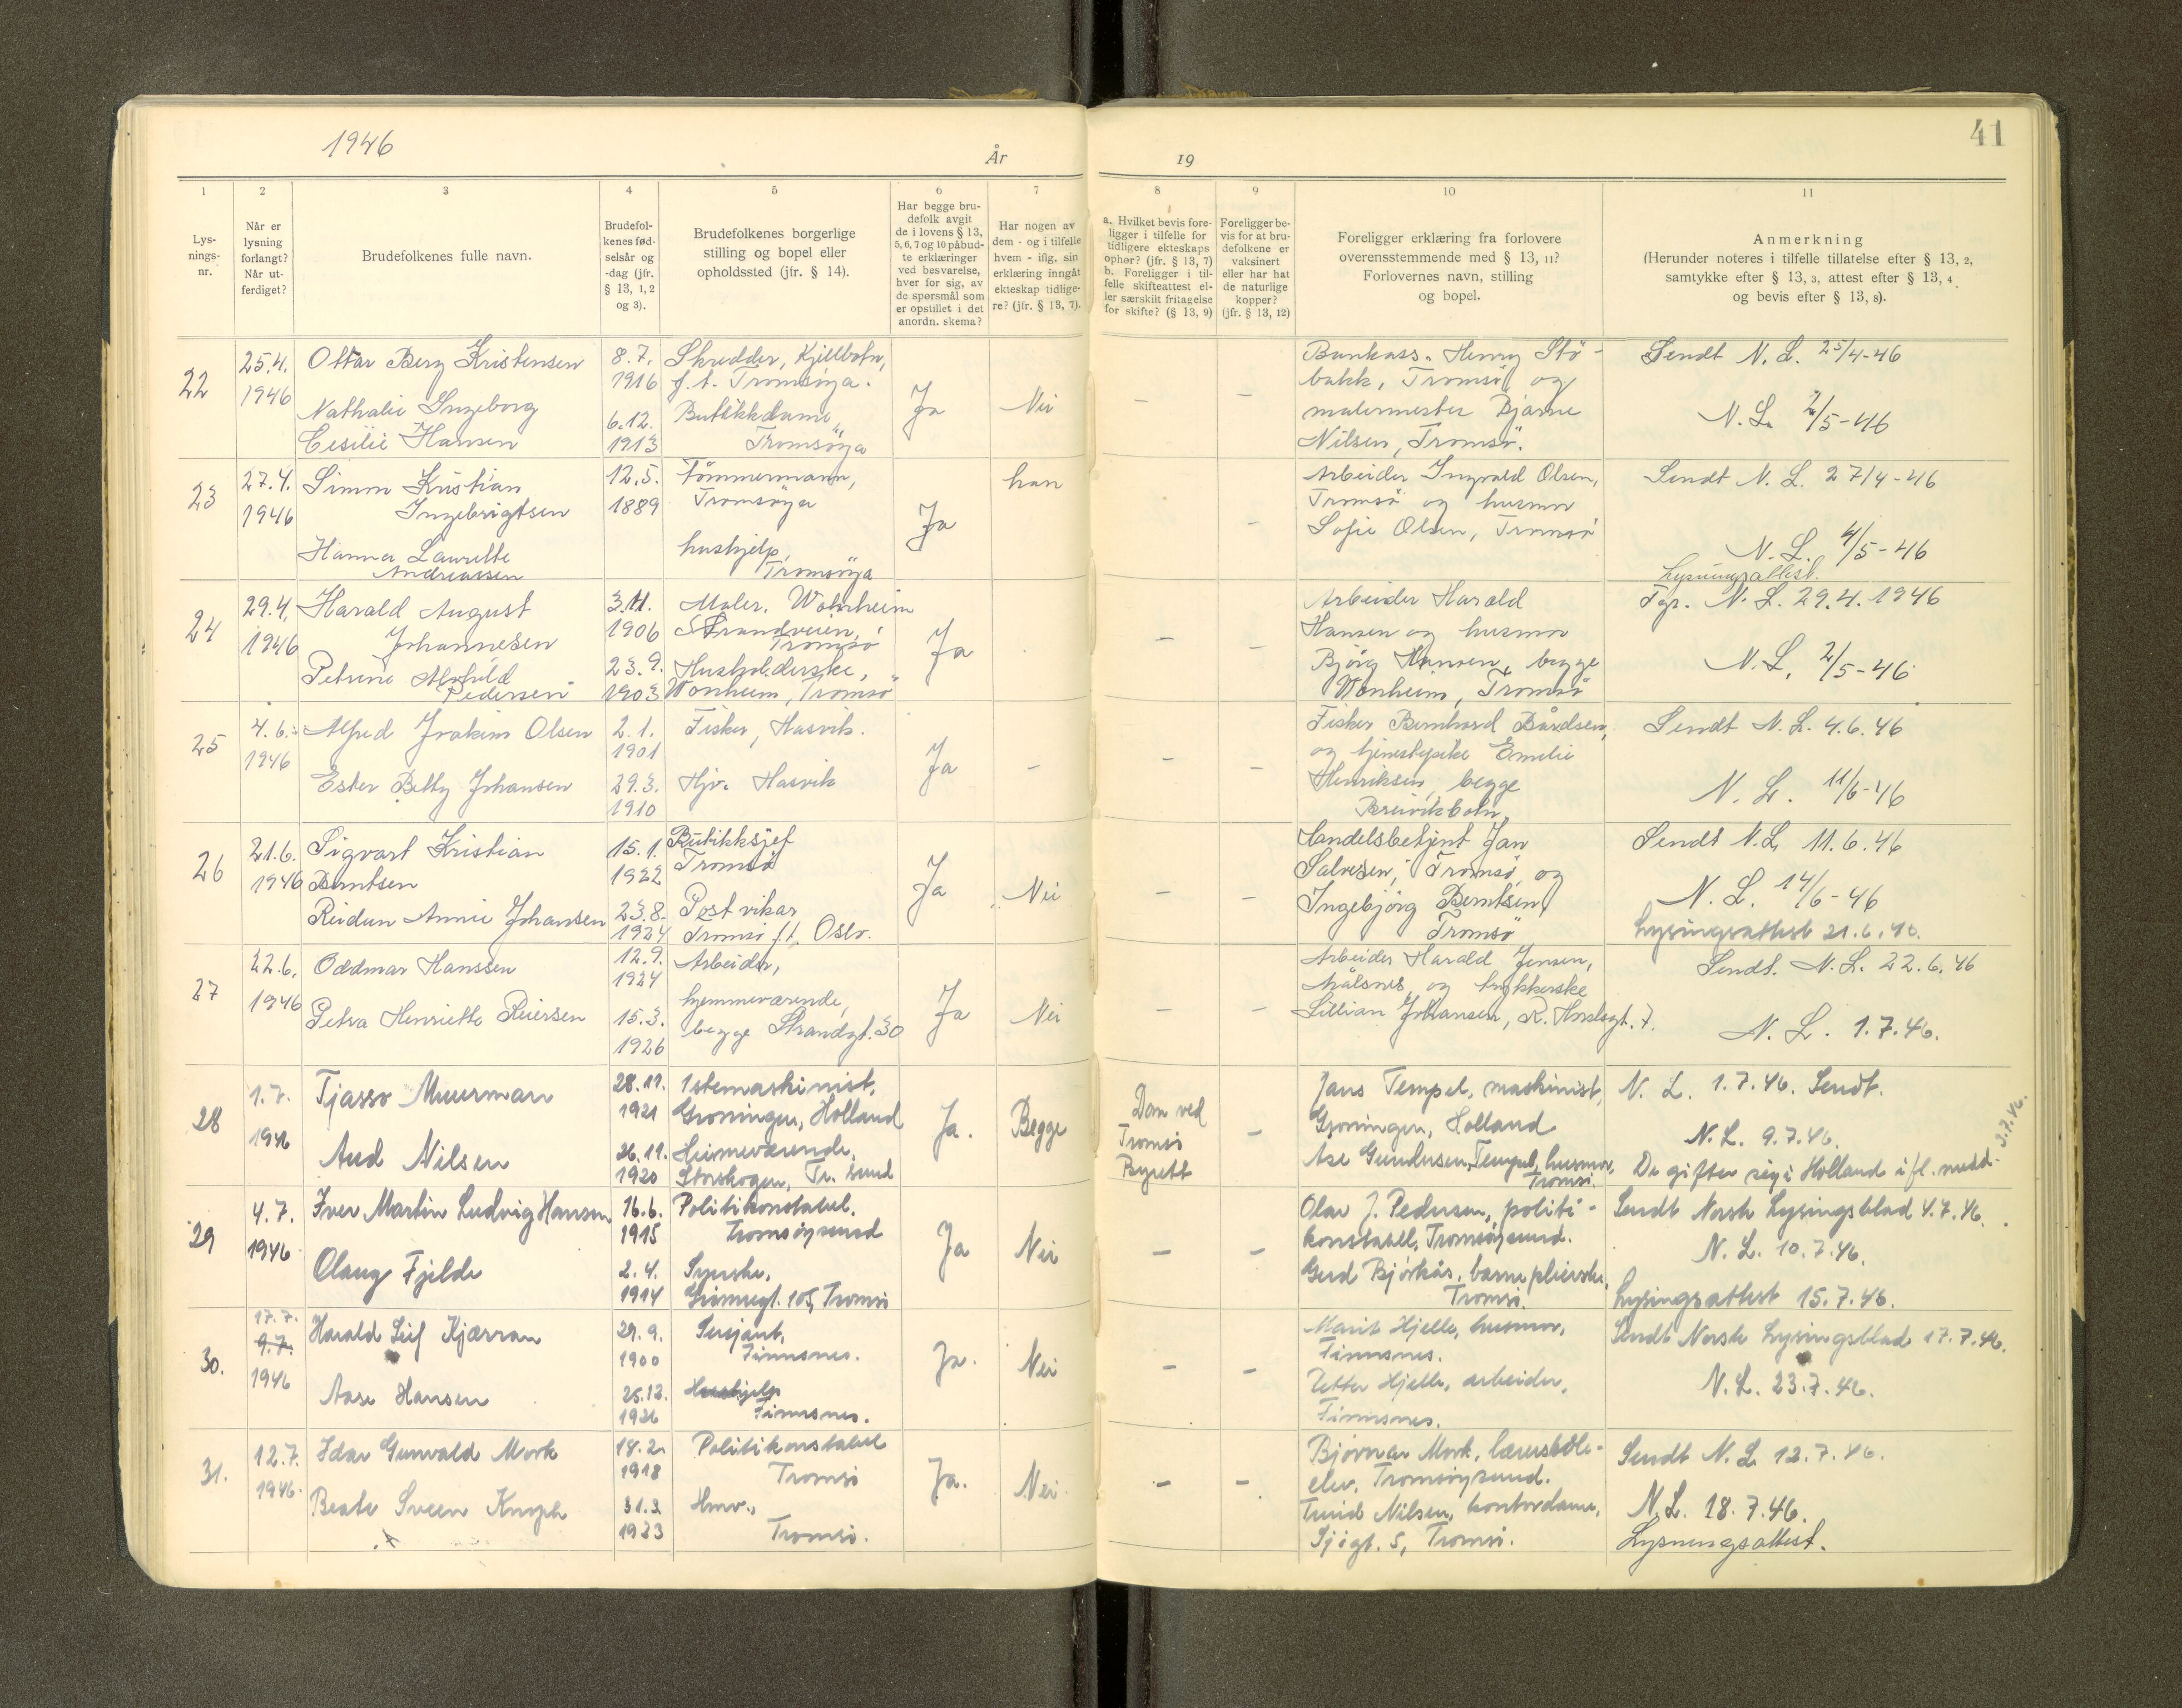 1946
År
19
41
1
2
3
4
5
6
7
8
9
10
11
Lys-
nings-
nr.
Når er
lysning
forlangt?
Når ut-
ferdiget?
Brudefolkenes fulle navn.
Brudefol-
kenes fød-
selsår og
-dag (jfr.
§ 13, 1, 2
og 3).
Brudefolkenes borgerlige
stilling og bopel eller
opholdssted (jfr. § 14).
Har begge bru-
defolk avgit
de i lovens § 13,
5, 6, 7 og 10 påbud-
te erklæringer
ved besvarelse,
hver for sig, av
de spørsmål som
er opstillet i det
anordn. skema?
Har nogen av
dem - og i tilfelle
hvem - iflg. sin
erklæring inngåt
ekteskap tidlige-
re? (jfr. § 13, 7).
a. Hvilket bevis fore-
ligger i tilfelle for
tidligere ekteskaps
ophør? (jfr. § 13, 7)
b. Foreligger i til-
felle skifteattest el-
ler særskilt fritagelse
for skifte? (§ 13, 9)
Foreligger be-
vis for at bru-
defolkene er
vaksinert
eller har hat
de naturlige
kopper?
(jfr. § 13, 12)
Foreligger erklæring fra forlovere
overensstemmende med § 13, 11?
Forlovernes navn, stilling
og bopel.
Anmerkning
(Herunder noteres i tilfelle tillatelse efter § 13, 2,
samtykke efter § 13, 3, attest efter § 13, 4
og bevis efter § 13, 8).
22
25.4.
1946
Ottar Berg Kristensen
Nathalie Ingeborg
Cesilie Hansen
8.7.
1916
6.12.
1913
Skredder, Kjillbotn,
f.t. Tromsøya.
Butikkdame,
Tromsøya
Ja
Nei
-
-
Bankass. Henry Stö-
bakk, Tromsö og
malermester Bjarne
Nilsen, Tromsö.
Sendt N. L. 25/4-46
N. L. 2/5-46
23
27.4.
1946
Simon Kristian
Ingebrigtsen
Hanna Laurette
Andreassen
12.5.
1889
Tömmermann,
Tromsöya
hushjelp,
Tromsöya
Ja
han
-
Arbeider Ingvald Olsen,
Tromsö og husmor
Sofie Olsen, Tromsö
Sendt N. L. 27/4-46
N. L. 4/5-46
Lysningsattest.
24
29.4.
1946
Harald August
Johannesen
Petrine
Pedersen
3.11.
1906
23.9.
1903
Maler, Wonheim
Strandveien,
Tromsö
Husholderske,
Wonheim, Tromsö
Ja
-
-
Arbeider Harald
Hansen og husmor
Bjørg Hansen, begge
Wonheim, Tromsö
Tgr. N. L. 29.4.1946
N. L. 2/5-46
25
4.6.
1946
Alfred Joakim Olsen
Ester Betty Johansen
2.1.
1901
29.3.
1910
Fisker, Hasvik.
Hjv. Hasvik
Ja
-
-
-
Fisker Bernhard Bårdsen,
og tjenestepike Emelie
Henriksen, begge
Breivikbotn.
Sendt N. L. 4.6.46
N. L. 11/6-46
26
21.6.
1946
Sigvart Kristian
Berntsen
Reidun Annie Johansen
15.1.
1922
23.8.
1924
Butikksjef
Tromsö
Post vikar,
Tromsö f.t. Oslo.
Ja
Nei
-
-
Handelsbetjent Jan
Salvesen, Tromsö, og
Ingebjörg Berntsen,
Tromsö
Sendt N. L. 11.6.46
N. L. 14/6-46
Lysingsattest 21.6.46.
27
22.6.
1946
Oddmar Hanssen
Petra Henriette Reiersen
12.9.
1924
15.3.
1926
Arbeider,
hjemmeværende,
begge Strandgt. 30
Ja
Nei
-
-
Arbeider Harald Jensen,
Målsnes og trykkerske
Lillian Johansen, R. Hjortsgt. 7.
Sendt. N. L. 22.6.46
N. L. 1.7.46.
28
1.7.
1946
Tjasso Muurman
Aud Nilsen
28.11.
1921
26.11.
1920
1stemaskinist,
Groningen, Holland
Heimeværende,
Storskogen, Tr.sund
Ja.
Begge
Dom ved
Tromsö
Byrett
-
Jans Tempel, maskinist,
Groningen, Holland
Ase Gundersen Tempel, husmor,
Tromsö.
N. L. 1.7.46. Sendt.
N. L. 9.7.46.
De gifter seg i Holland ifl. medd. 3.7.46.
29
4.7.
1946
Iver Martin Ludvig Hansen
Olaug Fjelde
16.6.
1915
2.4.
1914
Politikonstabel.
Tromsöysund
Syerske,
Grönnegt. 105, Tromsö
Ja
Nei
-
-
Olav J. Pedersen, politi-
konstabel, Tromsöysund.
Gerd Bjørkås, barnepleierske,
Tromsö.
Sendt Norsk Lysingsblad 4.7.46.
N. L. 10.7.46.
Lysingsattest 15.7.46.
30.
17.7.
9.7.
1946
Harald Leif Kjærran
Aase Hansen
29.9.
1900
25.12.
1926
Sersjant,
Finnsnes.
Hushjelp
Finnsnes.
Ja.
Nei
-
-
Marit Hjelle, husmor,
Finnsnes.
Petter Hjelle, arbeider,
Finnsnes.
Sendt Norsk Lysingsblad 17.7.46.
N. L. 23.7.46.
31.
12.7.
1946.
Idar Gunvald Mork
Beate Sveen Knoph
18.2.
1918
31.3.
1923
Politikonstabel
Tromsö
Hmv.,
Tromsö.
Ja.
Nei.
-
-
Bjørnar Mork, lærerskole-
elev, Tromsöysund.
Turid Nilsen, kontordame,
Sjögt. 5, Tromsö.
Sendt N. L. 12.7.46.
N. L. 18.7.46.
Lysningsattest.